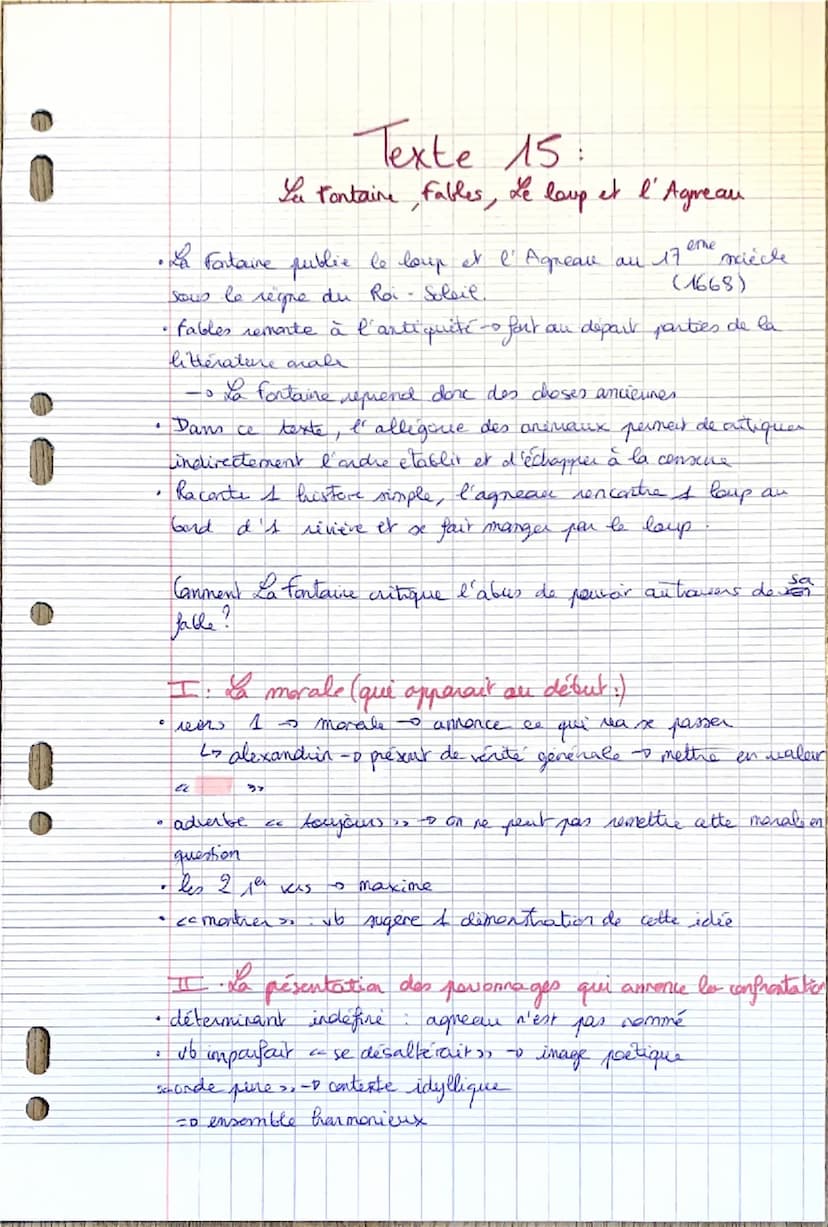 Texte 15 :
La Fontaine, Fables, Le loup et l'Agneau
• La Fontaine publie le loup et l'Agneau au 17ème siècle
sous le règne du Roi-Soleil. (1668)
• Fables remonte à l'antiquité → font au départ parties de la
littérature orale
→ La Fontaine reprend donc des choses anciennes
• Dans ce texte, l'allégorie des animaux permet de critiquer
indirectement l'ordre établit et d'échapper à la censure
• Raconte 1 histore simple, l'agneau rencontre 1 loup au
bord d'1 rivière et se fait manger par le loup.
Comment La Fontaine critique l'abus de pouvoir autravers de sa
fable ?
I : La morale (qui apparait au début :)
• vers 1 → morale → annonce ce qui va se passer
↳ alexandrin → présent de vérité générale → mettre en valeur
« »
• adverbe « toujours » → on ne peut pas remettre cette morale en
question
• les 2 1er vers → maxime
• « montrer » : vb sugère 1 démonstration de cette idée
II . La présentation des personnages qui annonce la confrontation
• déterminant indéfini : agneau n'est pas nommé
• vb imparfait « se désaltérait » → image poétique
« onde pure » → contexte idyllique
⇒ ensemble harmonieux